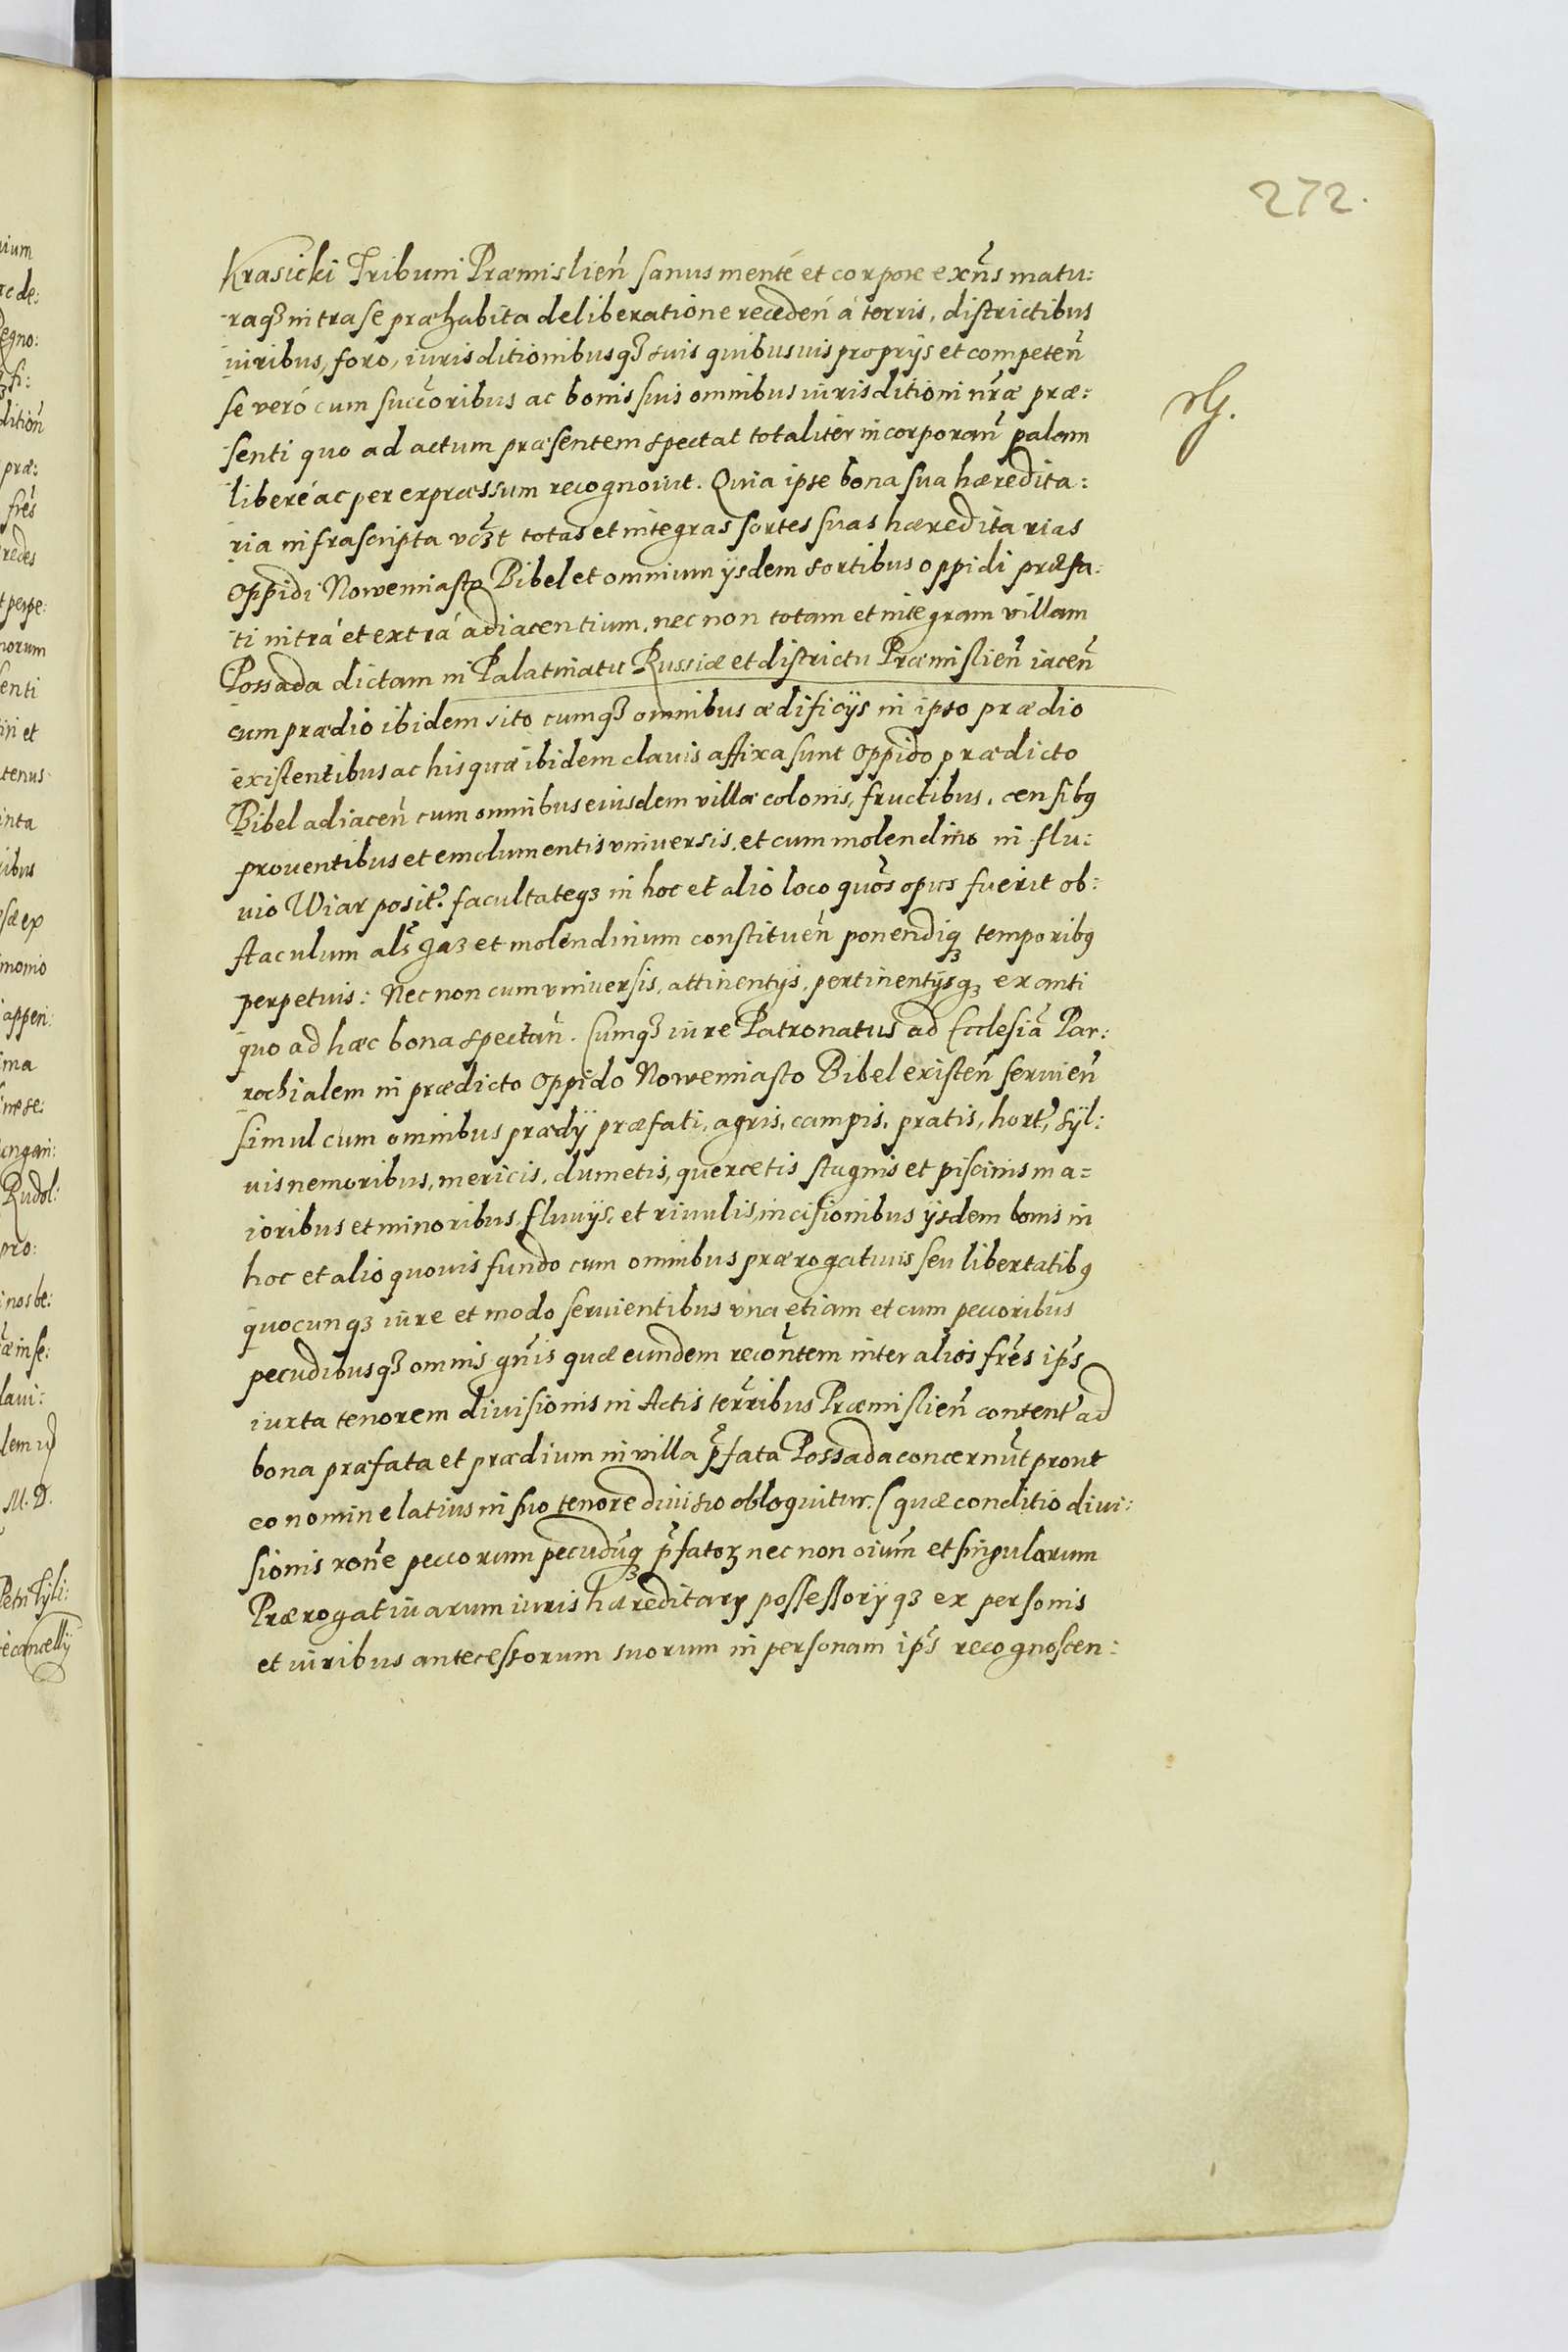 272.
Krasicki Tribuni Præmislień sanus menté et corpore exñs matu:
raqȝ intra se præhabita deliberatione receden̄ á terris, districtibus
iuribus, foro, iurisditionibusqȝ suis quibusuis proprijs et competeñ
se veró cum succ̃oribus ac bonis suis omnibus iurisditioni nr̃æ præ:
senti quo ad actum præsentem spectat totaliter incorporañ palam
liberé ac per expræssum recognouit. Quia ipse bona sua hæredita:
ria infrascripta vcȝt totas et integras sortes suas hæreditarias
Oppidi Nowemiasto Bibel et omnium ijsdem sortibus oppidi præfa:
ti intrá et extrá adiacentium, nec non totam et integram villam
Possada dictam in Palatinatu Russiæ et districtu Præmislień iaceñ
cum prædio ibidem sito cumqȝ omnibus ædificijs in ipso prædio
existentibus ac his quæ ibidem clauis affixa sunt Oppido prædicto
Bibel adiaceñ cum omnibus eiusdem villæ colonis, fructibus, censibꝰ
prouentibus et emolumentis vniuersis, et cum molendino in flu:
uio Wiar posit̃. facultateqȝ in hoc et alio loco quõs opus fuerit ob:
staculum als̃ Jaz et molendinum constitueñ ponendiqȝ temporibꝰ
perpetuis: Nec non cum vniuersis, attinentijs, pertinentijsqȝ ex anti
quo ad hæc bona spectañ. Cumqȝ iure Patronatus ad Ecclesiã Par:
rochialem in prædicto Oppido Nowemiasto Bibel existeñ seruień
simul cum omnibus prædij præfati, agris, campis, pratis, hort̃, syl:
uis nemoribus, mericis, dumetis, quercetis stagnis et piscinis ma=
ioribus et minoribus, fluuijs, et riuulis, incisionibus ijsdem bonis in
hoc et alio quouis fundo cum omnibus prærogatiuis seu libertatibꝰ
quocunqȝ iure et modo seruientibus vna etiam et cum peccoribus
pecudibusqȝ omnis gñis quæ eundem recoñtem inter alios fr̃es ip̃s
iuxta tenorem diuisionis in Actis terr̃ribus Præmislień content̃ ad
bona præfata et prædium in villa p̃fata Possada concernũt prout
eo nomine latius in suo tenore diuisio obloquitur. (quæ conditio diui:
sionis roñe peccorum pecudũqȝ p̃fatoꝝ nec non oiũm et singulorum
Prærogatiuarum iuris hæreditarij possessorijqȝ ex personis
et iuribus antecessorum suorum in personam ip̃s recognoscen: